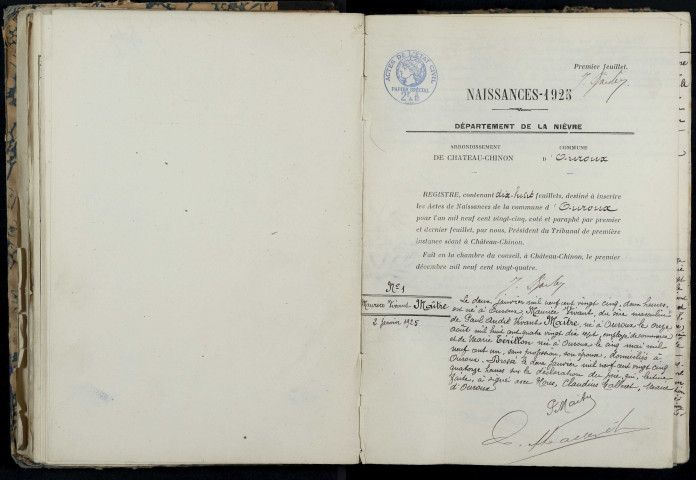 Premier feuillet.
ACTES DE L'ÉTAT CIVIL
PAPIER SPÉCIAL
NAISSANCES-1925
DÉPARTEMENT DE LA NIÈVRE
ARRONDISSEMENT
DE CHATEAU-CHINON
COMMUNE
D'Ouroux
REGISTRE, contenant dix-huit feuillets, destiné à inscrire
les Actes de Naissances de la commune d'Ouroux
pour l'an mil neuf cent vingt-cinq, coté et paraphé par premier
et dernier feuillet, par nous, Président du Tribunal de première
instance séant à Château-Chinon.
Fait en la chambre du conseil, à Château-Chinon, le premier
décembre mil neuf cent vingt-quatre.
N° 1
Maurice Vivant Maître
2 janvier 1925
Le deux janvier mil neuf cent vingt cinq, deux heures,
est né à Ouroux, Maurice Vivant, du sexe masculin
de Paul André Vivant Maître, né à Ouroux le onze
août mil huit cent quatre vingt dix sept, employé de commerce
et de Marie Térillon née à Ouroux le cinq mai mil
neuf cent un, sans profession, son épouse, domiciliés à
Ouroux. Dressé le deux janvier mil neuf cent vingt cinq
quatorze heures sur la déclaration du père, qui, lecture
faite, a signé avec Nous, Claudius Maire
d'Ouroux
P. Maitre